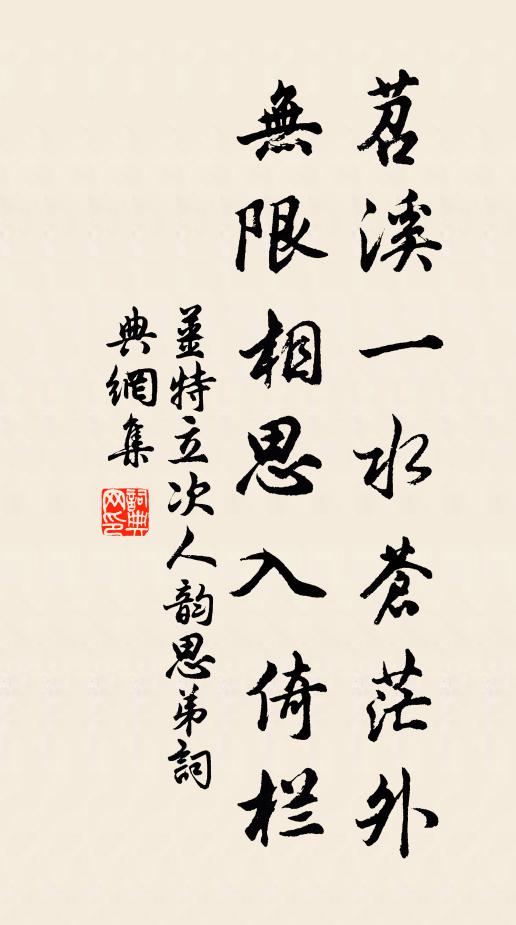 苕溪一水蒼茫外
無限相思入倚栏
薑特立次人韵思弟詞
典網集
詞典网印